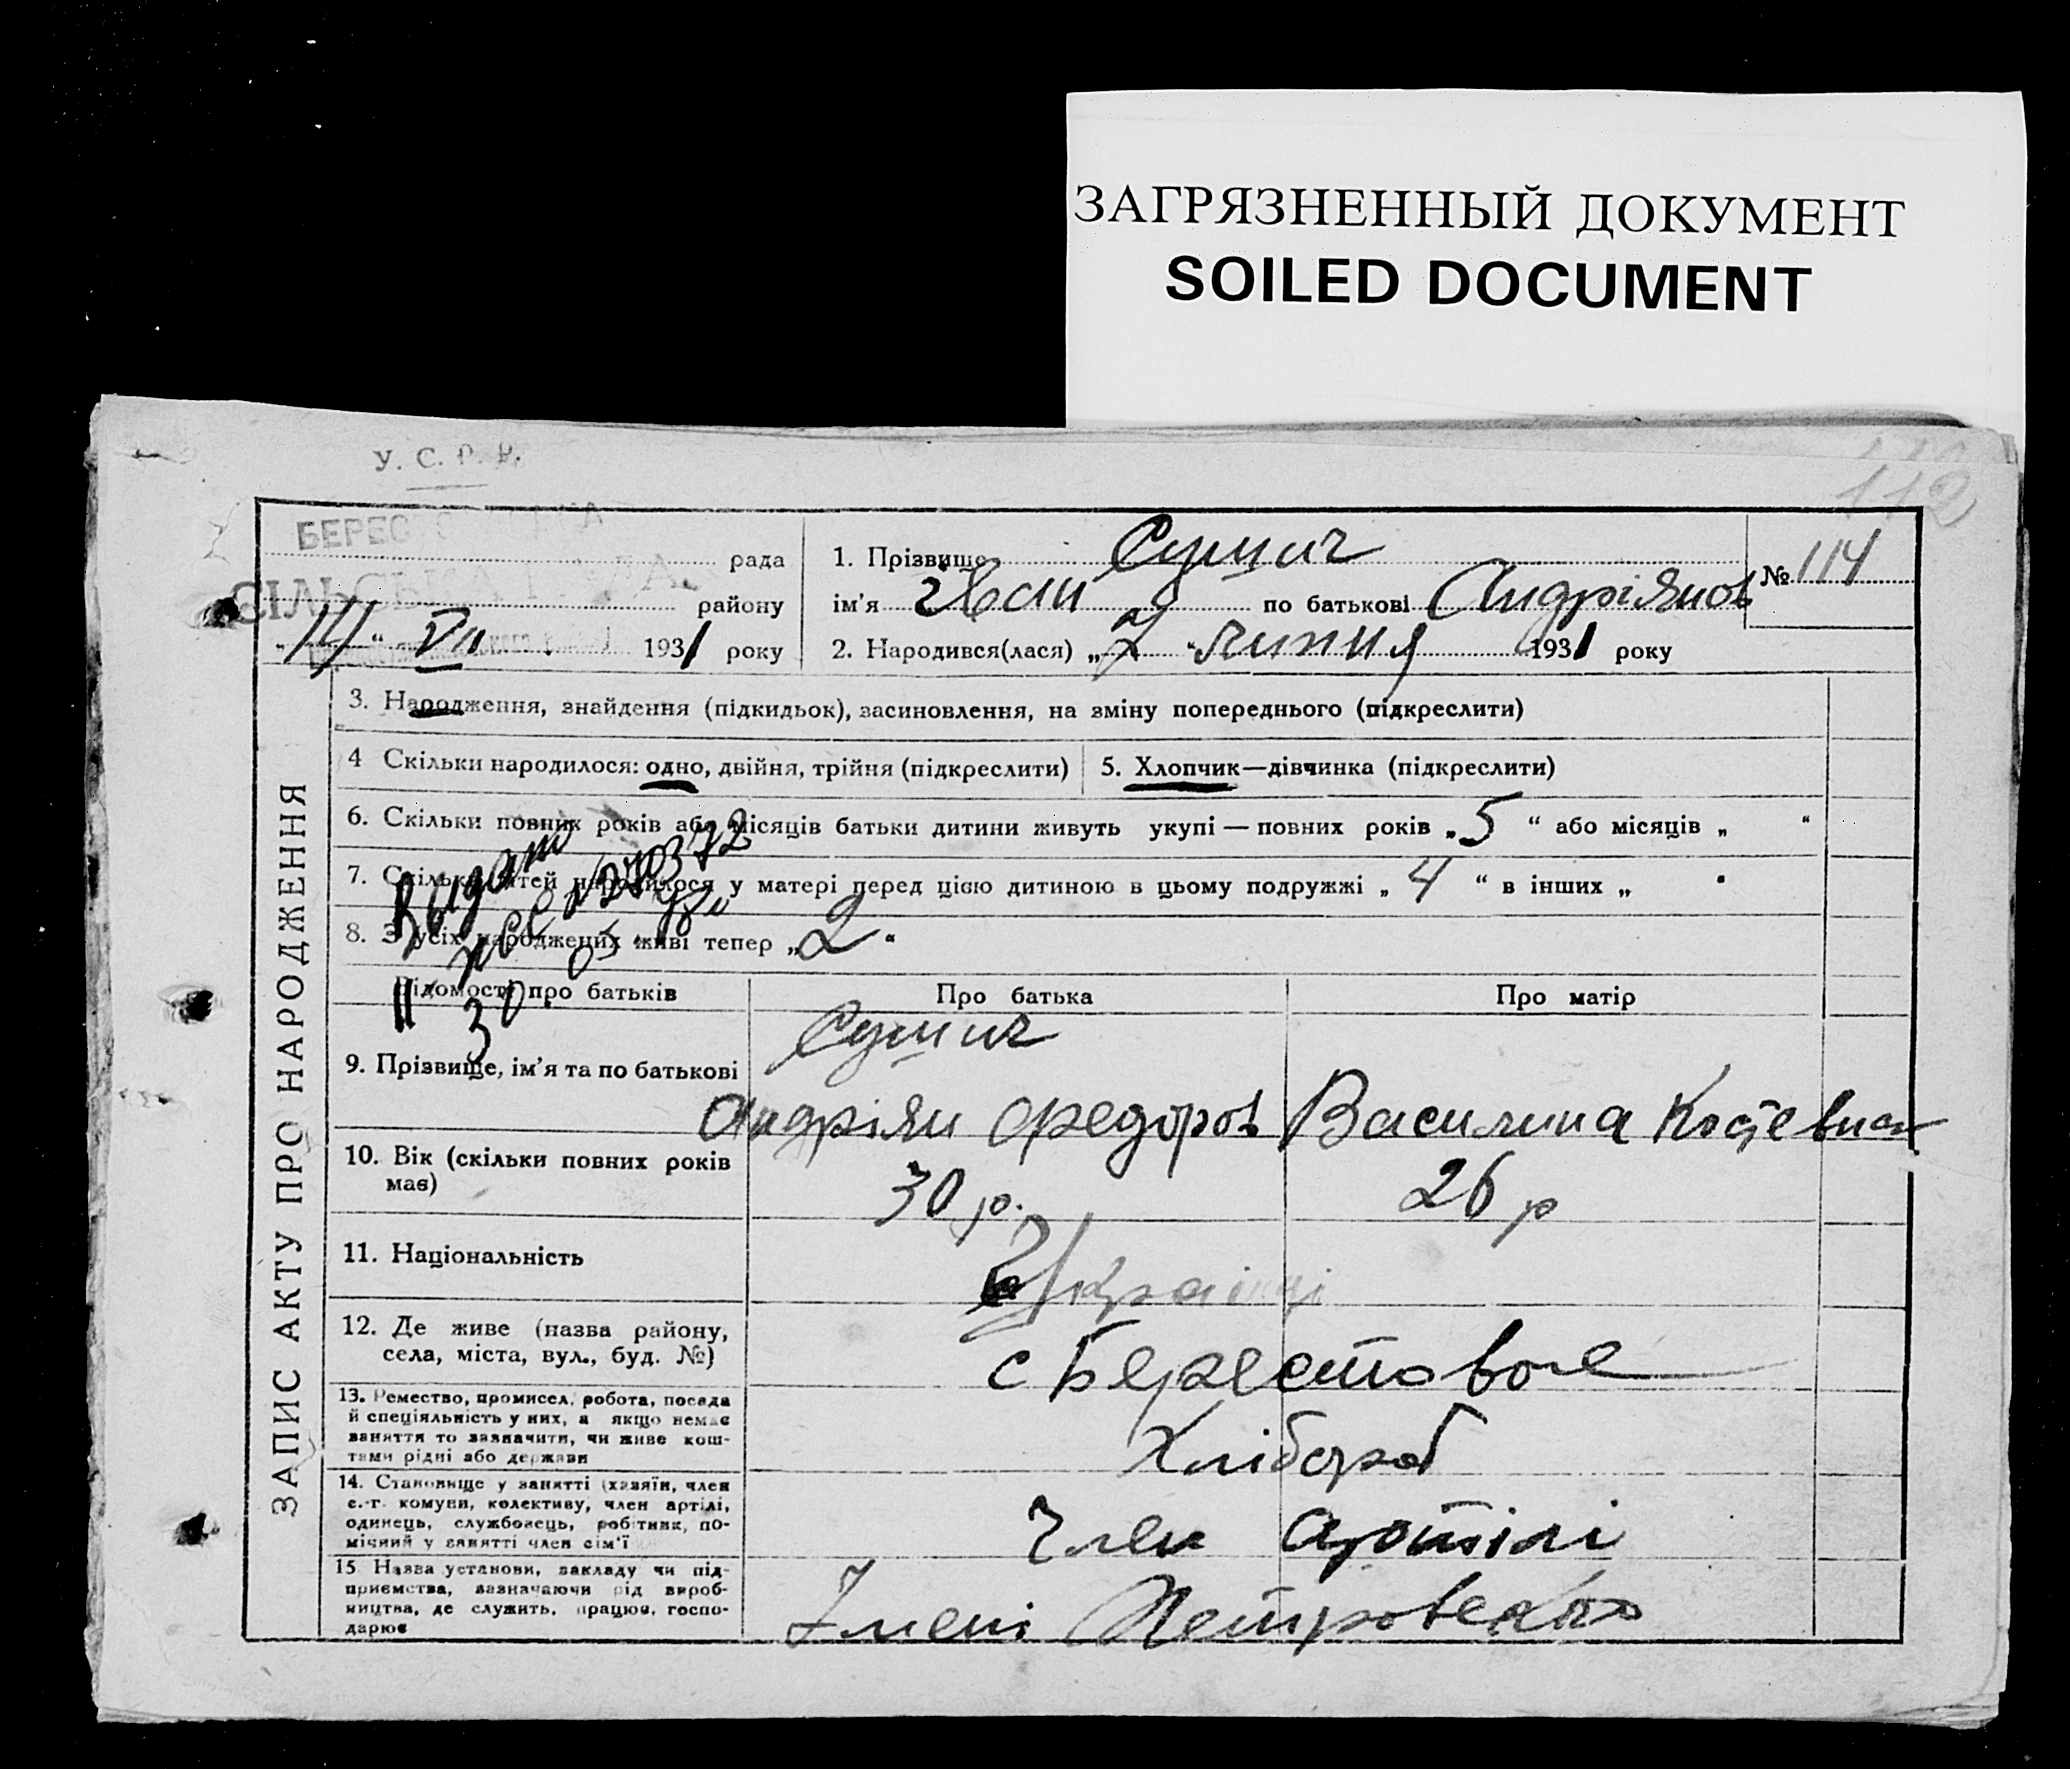 ЗАГРЯЗНЕННЫЙ ДОКУМЕНТ
SOILED DOCUMENT
У. С. Р. Р.
112
рада
району
„14“ VII 1931 року
1. Прізвище Сушич
№ 114
ім'я Іван по батькові Андріянов
2. Народився(лася) „2“ липня 1931 року
ЗАПИС АКТУ ПРО НАРОДЖЕННЯ
3. Народження, знайдення (підкидьок), засиновлення, на зміну попереднього (підкреслити)
4 Скільки народилося: одно, двійня, трійня (підкреслити)
5. Хлопчик—дівчинка (підкреслити)
6. Скільки повних років або місяців батьки дитини живуть укупі — повних років „5“ або місяців „ “
7. Скільки дітей народилося у матері перед цією дитиною в цьому подружжі „4“ в інших „ “
8. З усіх народжених живі тепер „2“
Відомості про батьків
Про батька
Про матір
9. Прізвище, ім'я та по батькові
Сушич
Андріян Федоров
Василина Костевна
10. Вік (скільки повних років
має)
30 р.
26 р
11. Національність
Українці
12. Де живе (назва району,
села, міста, вул., буд. №)
с Берестовое
13. Ремество, промисел, робота, посада
й спеціяльність у них, а якщо немає
заняття то зазначити, чи живе кош-
тами рідні або держави
Хлібороб
14. Становище у занятті (хазяїн, член
с.-г. комуни, колективу, член артілі,
одинець, службовець, робітник, по-
мічний у занятті член сім'ї
Член артілі
15 Назва установи, закладу чи під-
приємства, зазначаючи рід вироб-
ництва, де служить, працює, госпо-
дарює
Імені Петровского